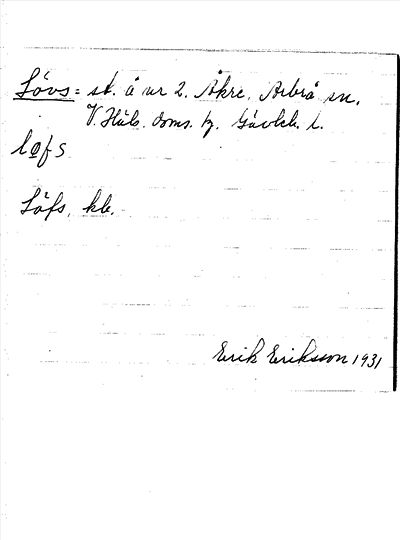 Lövs = st. å nr 2. Åkre, Arbrå sn.
V. Häls. doms. h. Gävleb. l.
løfs
Löfs, kb.
Erik Eriksson 1931